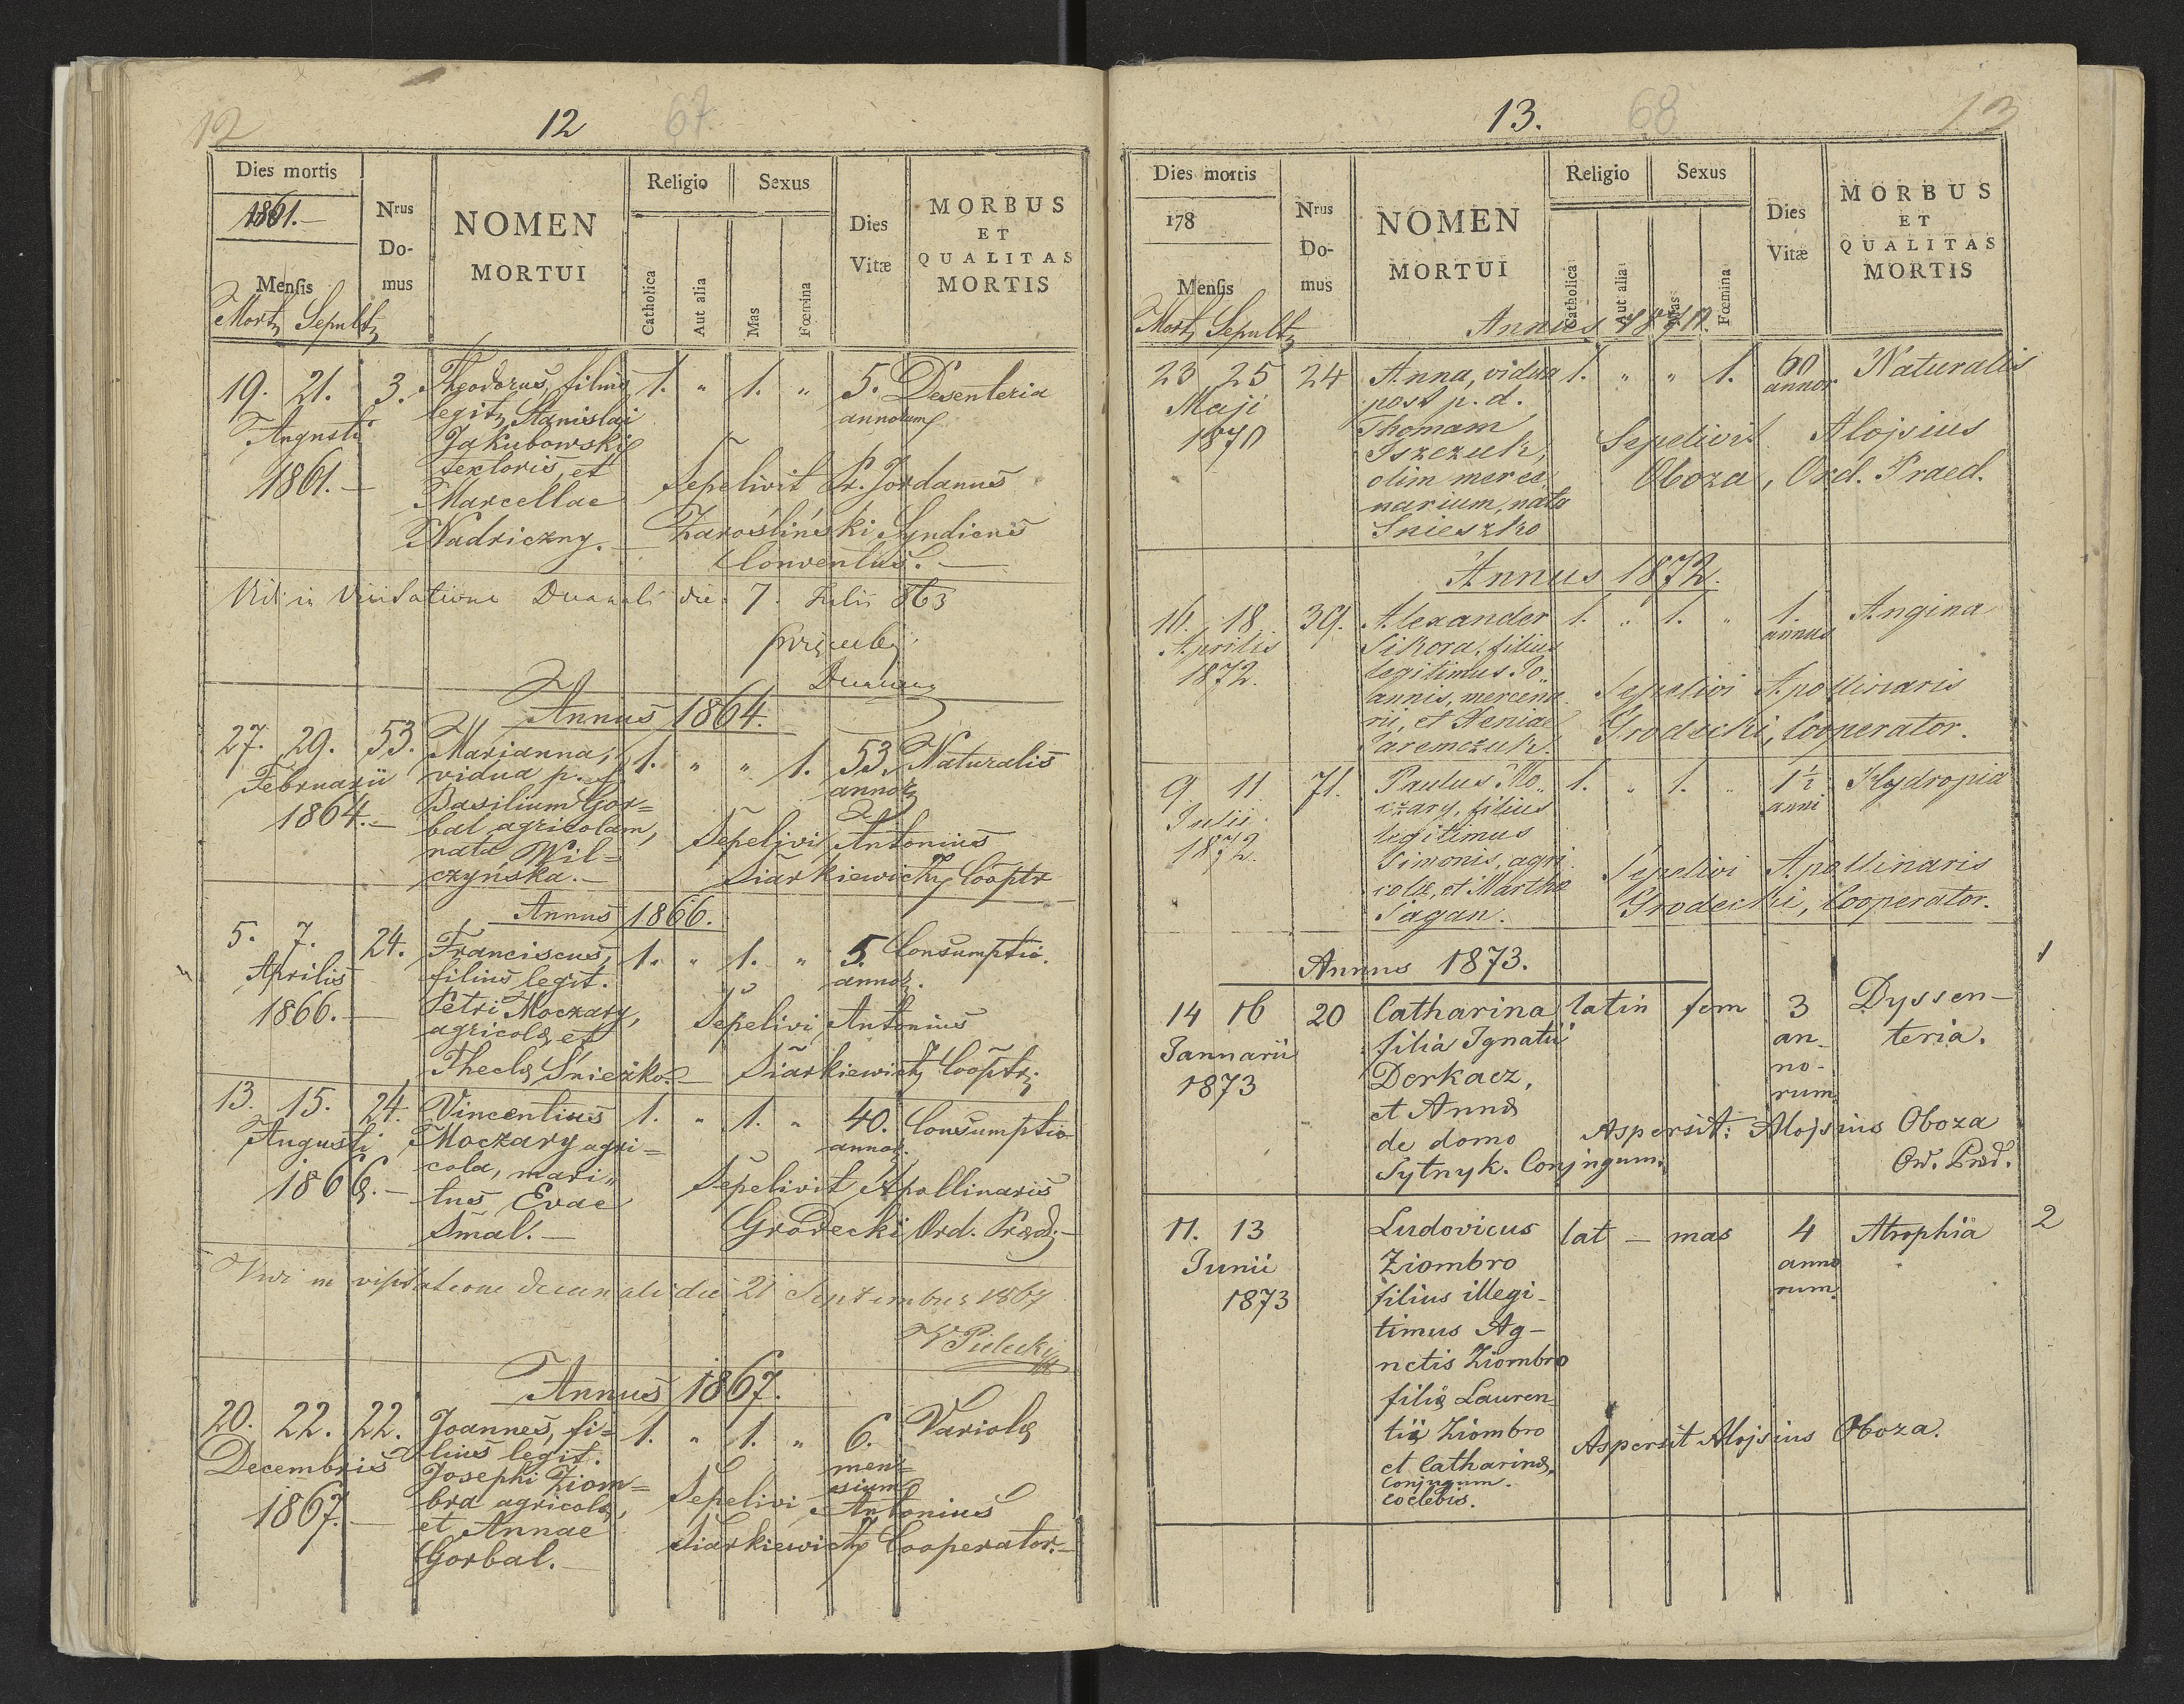 12 12 67
Dies mortis
1861.
Mensis
Mort. Sepult.
Nrus Do- mus
NOMEN
MORTUI
Religio
Catholica
Aut alia
Sexus
Mas
Fœmina
Dies
Vitæ
MORBUS
ET
QUALITAS
MORTIS
19. 21. 3. Theodorus, filius 1. „ 1. „ 5. Desenteria
Augusti legit. Stanislai annorum
Jakubowski
1861.— textoris, et Sepelivit Pr. Jordanus
Marcellae Zarośliński Syndicus
Nadriczny.— Conventus.—
Vidi in Visitatione Decanali die 7. Julii 863
Annus 1864.
27. 29. 53. Marianna, 1. „ „ 1. 53. Naturalis
Februarii vidua p. annor.
1864.— Basilium Gor=
bal agricolam, Sepelivi Antonius
nata Wil= Siarkiewicz Cooptr
czynska.—
Annus 1866.
5. 7. 24. Franciscus, 1. „ 1. „ 5. Consumptio.
Aprilis filius legit. annor.
1866.— Petri Moczary, Sepelivi Antonius
agricolæ et
Theclæ Śnieżko.— Siarkiewicz Cooptr.
13. 15. 24. Vincentius 1. „ 1. „ 40. Consumptio
Augusti Moczary agri= annor.
cola, mari„
1866.— tus Evae Sepelivit Apollinaris
Smal.— Grodecki Ord. Præd.—
Vidi in visitatione decanali die 21 Septembris 1867
W Pielecki
Annus 1867.
20. 22. 22. Joannes, fi= 1. „ 1. „ 6. Variolæ
Decembris lius legit. men=
Josephi Ziom= sium
bra agricolæ, Sepelivi Antonius
1867.— et Annae Siarkiewicz Cooperator.—
Gorbal.—
13. 68 13
Dies mortis
178
Mensis
Mort. Sepult.
Nrus Do- mus
NOMEN
MORTUI
Religio
Catholica
Aut alia
Sexus
Mas
Fœmina
Dies
Vitæ
MORBUS
ET
QUALITAS
MORTIS
Annus 1870.
23 25 24 Anna, vidua 1. „ „ 1. 60 Naturalis
Maji post p. d. annor
1870 Thomam Sepelivit Alojsius
Iszczuk, Oboza, Ord. Praed.
olim merce„
narium, nata
Snieszko
Annus 1872.
16. 18 39. Alexander 1. „ 1. „ 1. Angina
Aprilis Sikora, filius annus
1872. legitimus Jo„
annis, mercena Sepelivi Apollinaris
rii, et Xeniae Grodecki, Cooperator.
Jaremczuk.
9 11 71. Paulus Mo„ 1. „ 1. „ 1½ Hydropia
Julii czary, filius anni
1872. legitimus
Simonis, agri Sepelivi Apollinaris
colæ, et Marthæ Grodecki, Cooperator.
Sagan.
Annus 1873. 1
14 16 20 Catharina latin fem 3 Dyssen-
Januarii filia Ignatii an- teria.
1873 Derkacz, no-
et Annæ rum
de domo Aspersit: Alojsius Oboza
Sytnyk. Conjugum. Ord. Præd.
11. 13 Ludovicus lat — mas 4 Atrophia 2
Junii Ziombro anno
1873 filius illegi- rum.
timus Ag-
netis Ziombro
filiæ Lauren-
tii Ziombro Aspersit Alojsius Oboza.
et Catharinæ,
Conjugum.
coelebis.